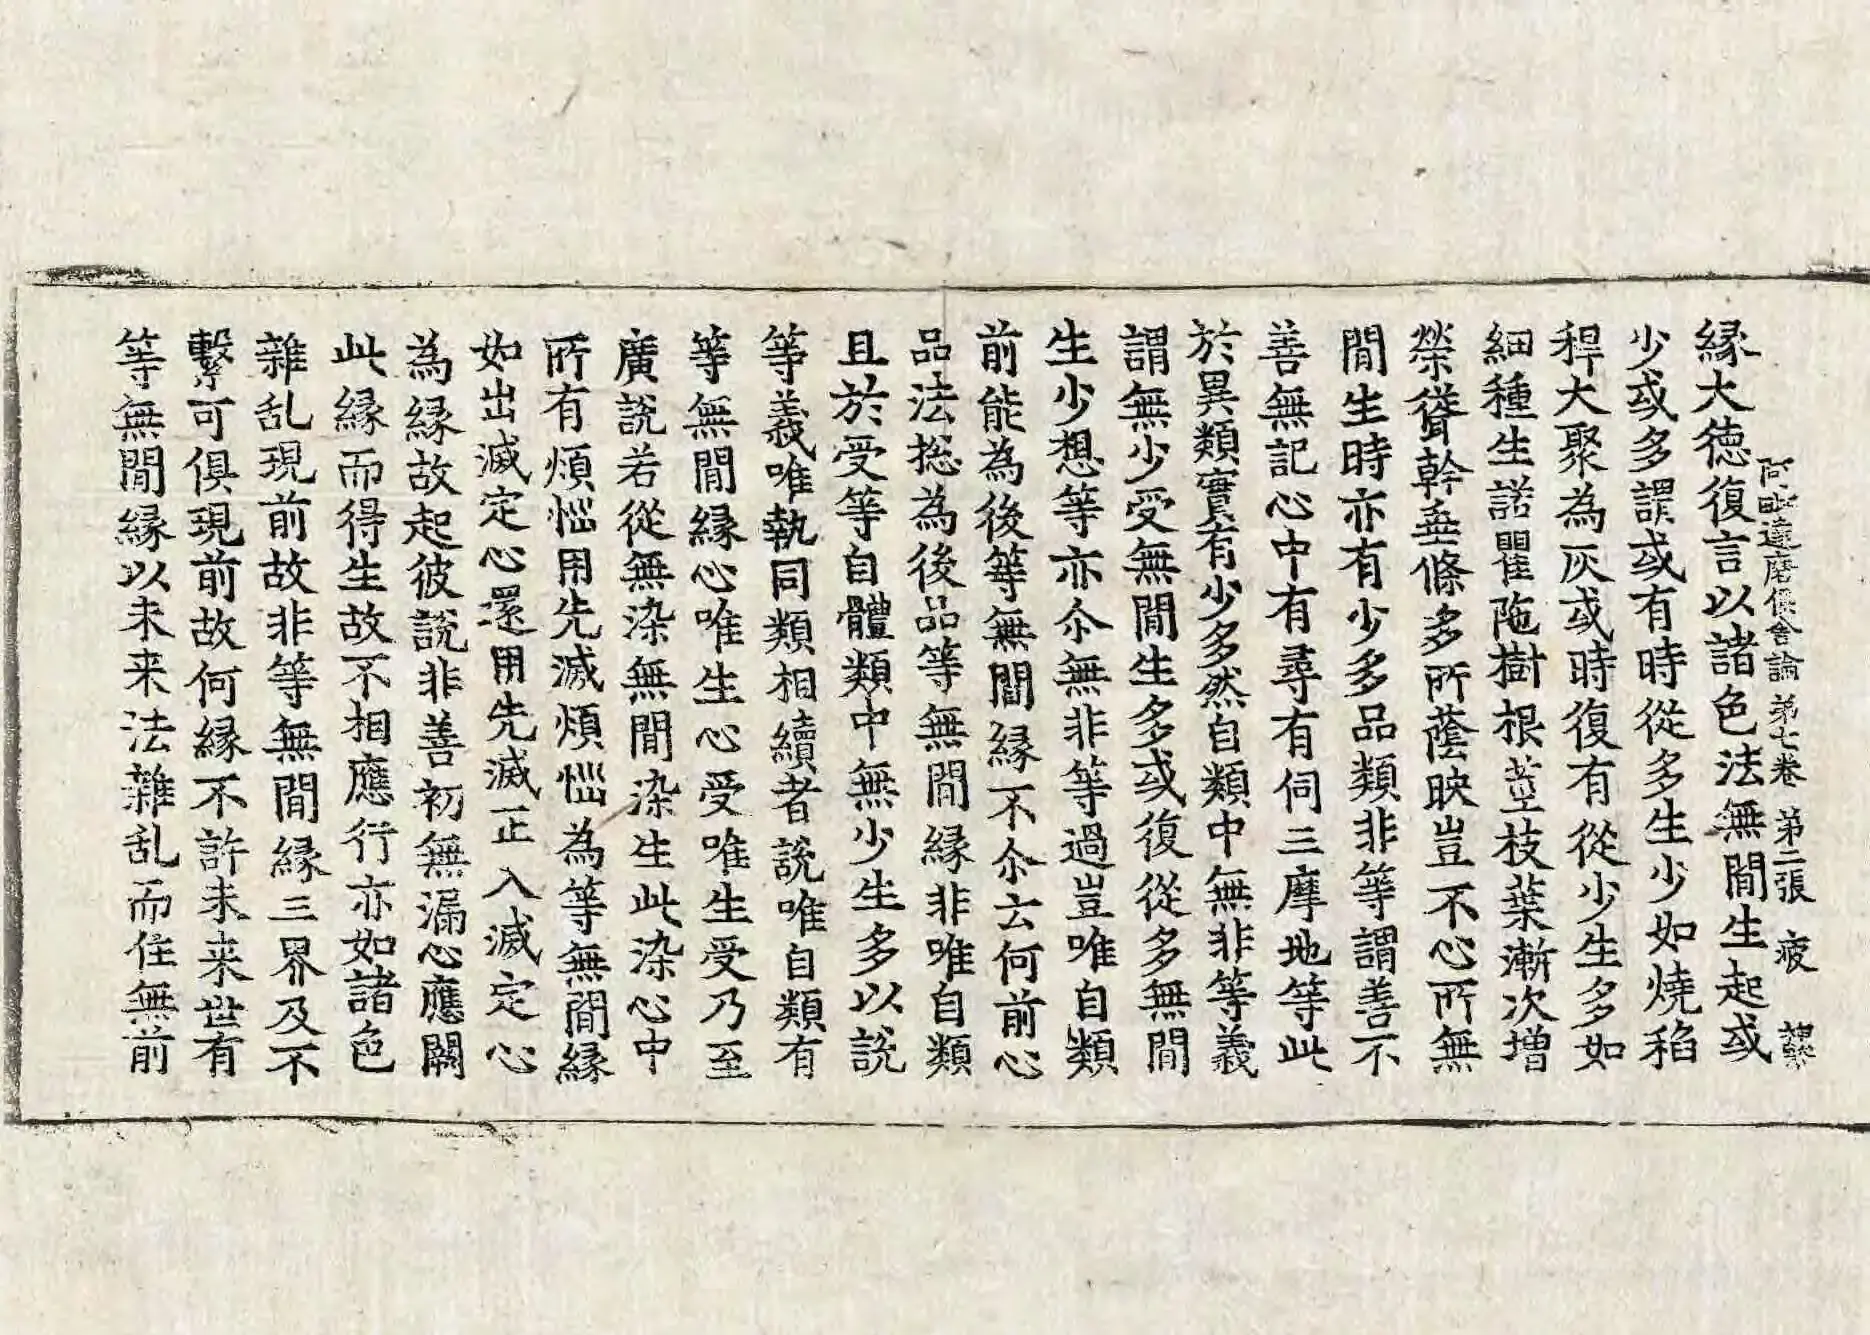 阿毗達磨俱舍論 弟七卷 弟二張 疲
縁大徳復言以諸色法無閒生起或
少或多謂或有時從多生少如燒稻
稈大聚為灰或時復有從少生多如
細種生諾瞿陁樹根莖枝葉漸次增
榮聳幹垂條多所蔭映豈不心所無
閒生時亦有少多品類非等謂善不
善無記心中有尋有伺三摩地等此
於異類實有少多然自類中無非等義
謂無少受無閒生多或復從多無閒
生少想等亦尒無非等過豈唯自類
前能為後等無閒縁不尒云何前心
品法捴為後品等無閒縁非唯自類
且於受等自體類中無少生多以說
等義唯執同類相續者說唯自類有
等無閒縁心唯生心受唯生受乃至
廣說若從無染無閒染生此染心中
所有煩惱用先滅煩惱為等無閒縁
如出滅定心還用先滅正入滅定心
為縁故起彼說非善初無漏心應闕
此縁而得生故不相應行亦如諸色
雜乱現前故非等無閒縁三界及不
繫可俱現前故何縁不許未来世有
等無閒縁以未来法雜乱而住無前